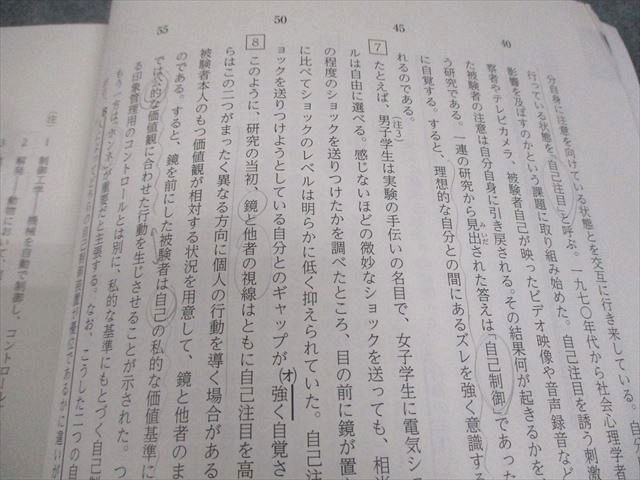 40
45
50
55
分自身に注意を向けている状態とを交互に行き来している。自
行っている状態を「自己注目」と呼ぶ。一九七〇年代から社会心理学者
影響を及ぼすのかという課題に取り組み始めた。自己注目を誘う刺激
察者やテレビカメラ、被験者自己が映ったビデオ映像や音声録音など
た被験者の注意は自分自身に引き戻される。その結果何が起きるかを、
う研究である。一連の研究から見出された答えは「自己制御」であった
みいだ
に自覚する。すると、理想的な自分との間にあるズレを強く意識する
れるのである。
7
たとえば、男子学生は実験の手伝いの名目で、女子学生に電気シ
(注3)
ルは自由に選べる。感じないほどの微妙なショックを送っても、相当
の程度のショックを送りつけたかを調べたところ、目の前に鏡が置か
に比べてショックのレベルは明らかに低く抑えられていた。自己注
ョックを送りつけようとしている自分とのギャップが
(オ)
強く自覚さ
8
このように、研究の当初、鏡と他者の視線はともに自己注目を高
らはこの二つがまったく異なる方向に個人の行動を導く場合がある
被験者本人のもつ価値観が相対する状況を用意して、鏡と他者のま
のである。すると、鏡を前にした被験者は自己の私的な価値基準に
では公的な価値観に合わせた行動を生じさせることが示された。つ
る印象管理用のコントロールとは別に、私的な基準にもとづく自己制
もう一方は、ホンネが重要だと主張する。なお、こうした二つの自
(注)
1 制御工学――機械を自動で制御し、コントロール
2 解発――動物において、
3